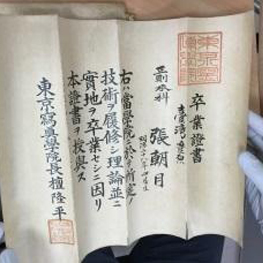 卒業證書
臺灣
正則本科
張朝目
右ハ當學院ニ於テ所定ノ
技術ヲ履修シ理論並ニ
實地ヲ卒業セシニ因リ
本證書ヲ授與ス
東京寫眞學院長檀隆平